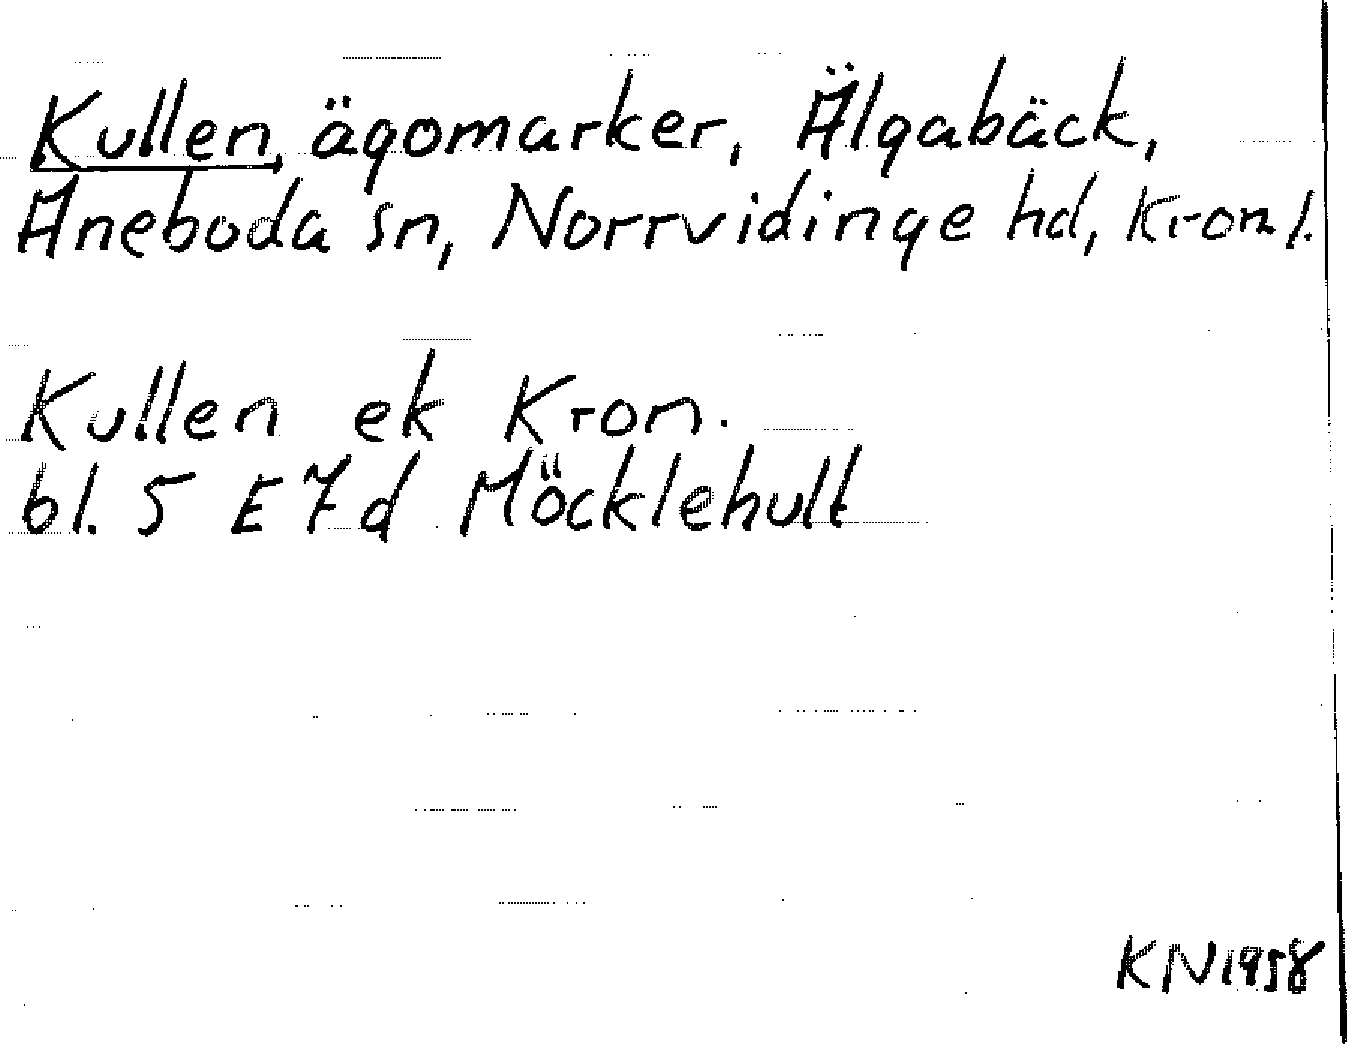 Kullen, ägomarker, Älgabäck,
Aneboda sn, Norrvidinge hd, Kron l.
Kullen ek Kron.
bl. 5 E 7 d Möcklehult
KN 1958